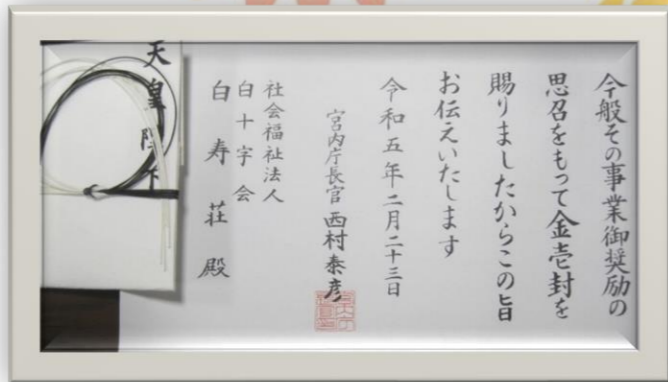 今般その事業御奨励の
思召をもって金壱封を
賜りましたからこの旨
お伝えいたします
令和五年二月二十三日
宮内庁長官 西村泰彦
社会福祉法人
白十字会
白寿荘殿
天皇陛下